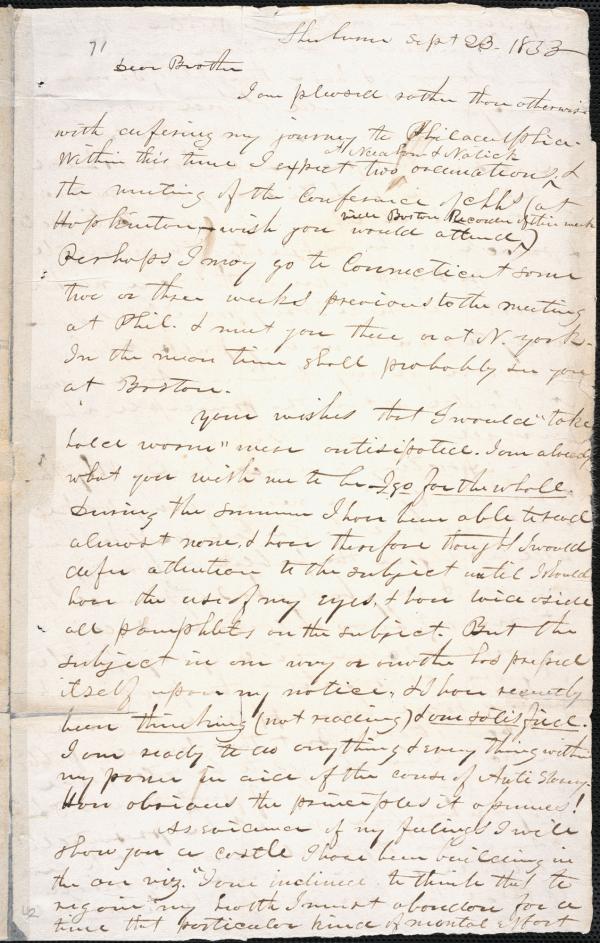 71
Sherburne Sept 23. 1833
Dear Brother
I am pleased rather than otherwise
with defering my journey to Philadelphia.
at Needham & Natick
Within this time I expect two ordinations, &
the meeting of the Conference of chhs (at
vide Boston Recorder of this week
Hopkinton, wish you would attend,)
Perhaps I may go to Connecticut some
two or three weeks previous to the meeting
at Phil. & meet you there or at N. york.
In the mean time shall probably see you
at Boston.
Your wishes that I would "take
hold warm" were antisipated. I am already
what you wish me to be. I go for the whole.
During the summer I have been able to read
almost none, & have therefore thought I would
defer attention to the subject until I should
have the use of my eyes, & have laid aside
all pamphlets on the subject. But the
subject in one way or another has pressed
itself upon my notice, & I have recently
been thinking (not reading) & am satisfied.
I am ready to do anything & every thing within
my power in aid of the cause of Anti Slavery.
How obvious the principles it assumes!
As evidence of my feelings I will
show you a castle I have been building in
the air viz. "I am inclined to think that to
regain my health I must abandon for a
time that particular kind of mental effort
42